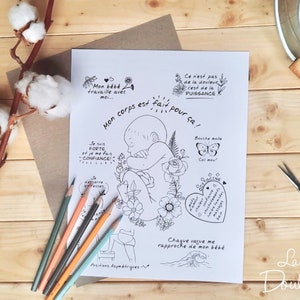 Mon bébé
travaille avec
moi...
Ce n'est pas
de la douleur
c'est de la
PUISSANCE
Mon corps est fait pour ça!
Bouche molle
Col mou!
Je suis
FORTE
et je me fais
CONFIANCE!
Chaque vague me
rapproche de mon bébé
Positions Asymétriques
La
Dou